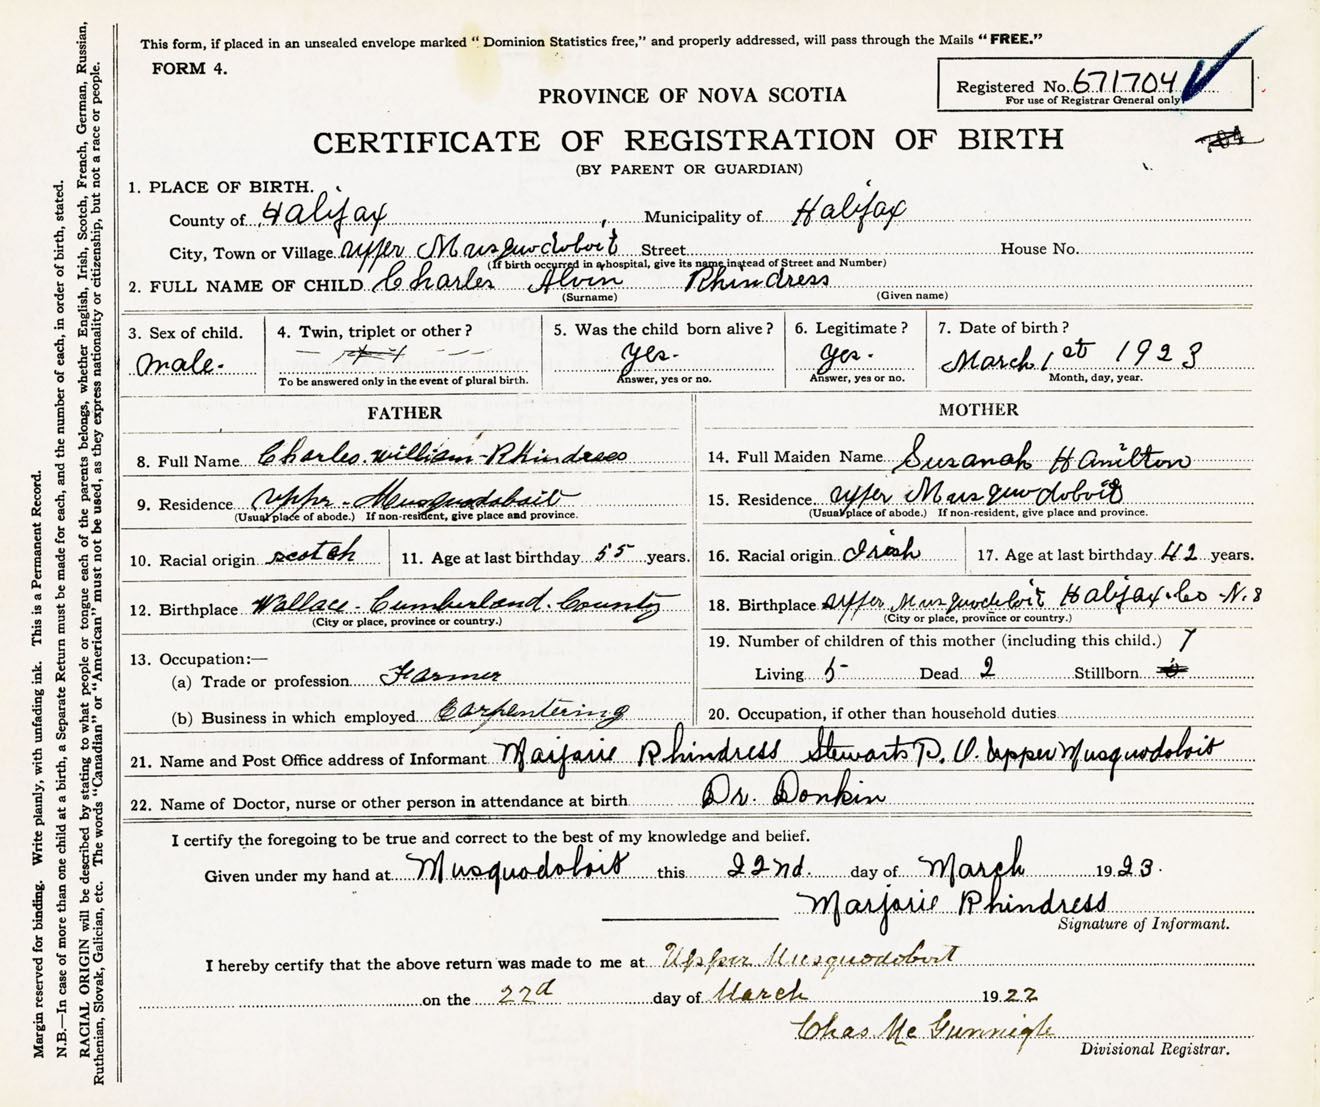 This form, if placed in an unsealed envelope marked "Dominion Statistics free," and properly addressed, will pass through the Mails "FREE."
FORM 4.
Registered No. 671704
For use of Registrar General only
PROVINCE OF NOVA SCOTIA
CERTIFICATE OF REGISTRATION OF BIRTH
(BY PARENT OR GUARDIAN)
1. PLACE OF BIRTH.
County of Halifax Municipality of Halifax
City, Town or Village upper Musquodoboit Street House No.
(If birth occurred in a hospital, give its name instead of Street and Number)
2. FULL NAME OF CHILD Charles Alvin Rhindress
(Surname) (Given name)
3. Sex of child. 4. Twin, triplet or other? 5. Was the child born alive? 6. Legitimate? 7. Date of birth?
male. yes. yes. March 1st 1923
To be answered only in the event of plural birth. Answer, yes or no. Answer, yes or no. Month, day, year.
FATHER MOTHER
8. Full Name Charles william Rhindress
9. Residence upper Musquodoboit
(Usual place of abode.) If non-resident, give place and province.
10. Racial origin scotch 11. Age at last birthday 55 years.
12. Birthplace Wallace Cumberland County
(City or place, province or country.)
13. Occupation:—
(a) Trade or profession Farmer
(b) Business in which employed Carpentering
14. Full Maiden Name Susanah Hamilton
15. Residence upper Musquodoboit
(Usual place of abode.) If non-resident, give place and province.
16. Racial origin Irish 17. Age at last birthday 42 years.
18. Birthplace upper Musquodoboit Halifax Co N.S
(City or place, province or country.)
19. Number of children of this mother (including this child.) 7
Living 5 Dead 2 Stillborn
20. Occupation, if other than household duties
21. Name and Post Office address of Informant Marjorie Rhindress Stewarts P. O. Upper Musquodoboit
22. Name of Doctor, nurse or other person in attendance at birth Dr. Donkin
I certify the foregoing to be true and correct to the best of my knowledge and belief.
Given under my hand at Musquodoboit this 22nd. day of March 1923.
Marjorie Rhindress
Signature of Informant.
I hereby certify that the above return was made to me at Upper Musquodoboit
on the 22d day of March 1922
Chas Mc Gunnigle
Divisional Registrar.
Margin reserved for binding. Write plainly, with unfading ink. This is a Permanent Record.
N.B.—In case of more than one child at a birth, a Separate Return must be made for each, and the number of each, in order of birth, stated.
RACIAL ORIGIN will be described by stating to what people or tongue each of the parents belongs, whether English, Irish, Scotch, French, German, Russian,
Ruthenian, Slovak, Galician, etc. The words "Canadian" or "American" must not be used, as they express nationality or citizenship, but not a race or people.